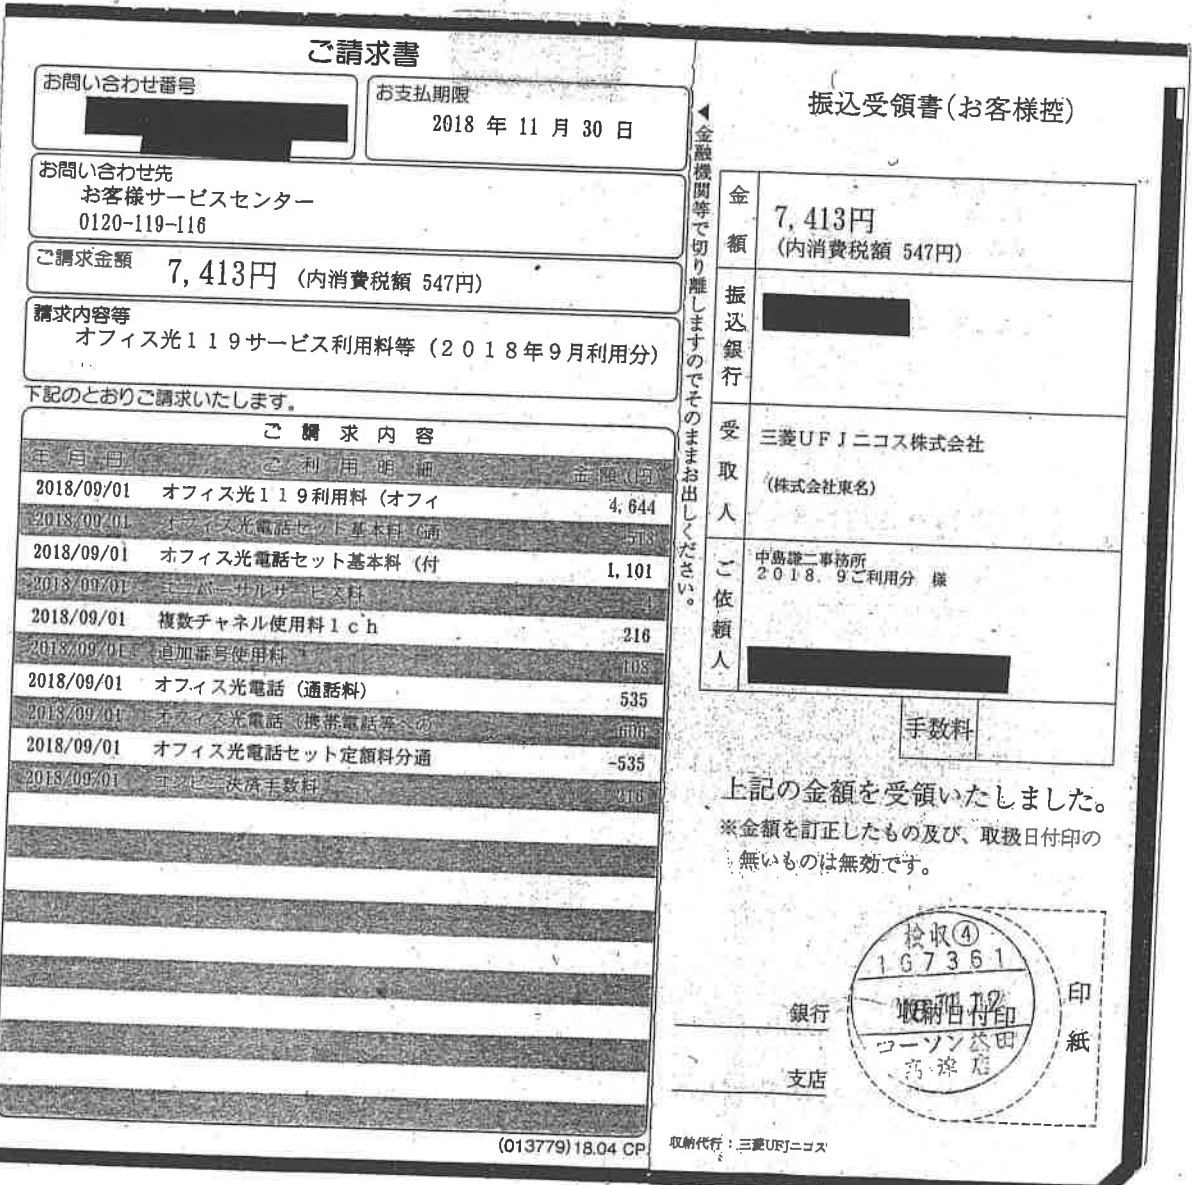 ご請求書
お問い合わせ番号
お支払期限
2018 年 11 月 30 日
お問い合わせ先
お客様サービスセンター
0120-119-116
ご請求金額 7,413円 (内消費税額 547円)
請求内容等
オフィス光119サービス利用料等 (2018年9月利用分)
下記のとおりご請求いたします。
ご請求内容
年月日 ご利用明細 金額(円)
2018/09/01 オフィス光119利用料 (オフィ 4,644
2018/09/01 オフィス光電話セット基本料 (通 518
2018/09/01 オフィス光電話セット基本料 (付 1,101
2018/09/01 ユニバーサルサービス料 4
2018/09/01 複数チャネル使用料1ch 216
2018/09/01 追加番号使用料 108
2018/09/01 オフィス光電話 (通話料) 535
2018/09/01 オフィス光電話 (携帯電話等への 606
2018/09/01 オフィス光電話セット定額料分通 -535
2018/09/01 コンビニ決済手数料 216
(013779)18.04 CP.
◀金融機関等で切り離しますのでそのままお出しください。
振込受領書(お客様控)
金額
7,413円
(内消費税額 547円)
振込銀行
受取人
三菱UFJニコス株式会社
(株式会社東名)
ご依頼人
中島謙二事務所
2018.9ご利用分 様
手数料
上記の金額を受領いたしました。
※金額を訂正したもの及び、取扱日付印の
無いものは無効です。
検収④
167361
収納日付印
ローソン
銀行
支店
印紙
収納代行:三菱UFJニコス